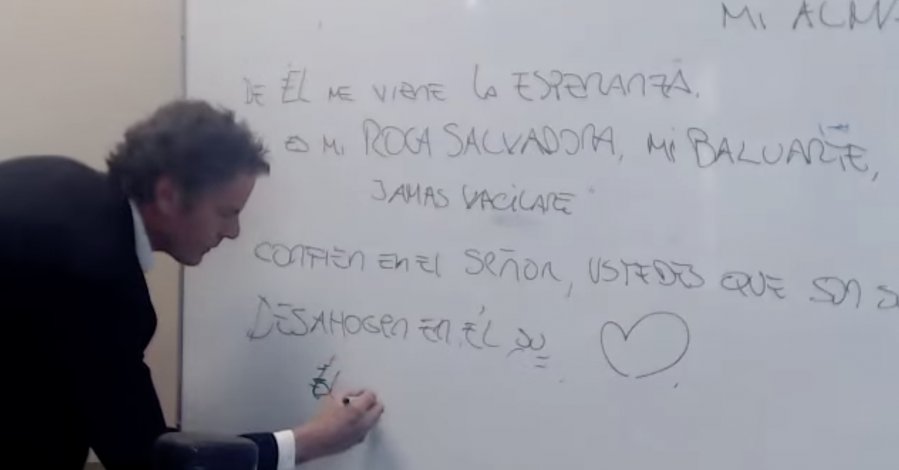 MI ALMA
DE ÉL ME VIENE la ESPERANZA.
ES MI ROCA SALVADORA, MI BALUARTE,
JAMAS VACILARE"
CONFIEN EN El SEÑOR, USTEDES QUE SON
DESAHOGEN EN ÉL SU
Él